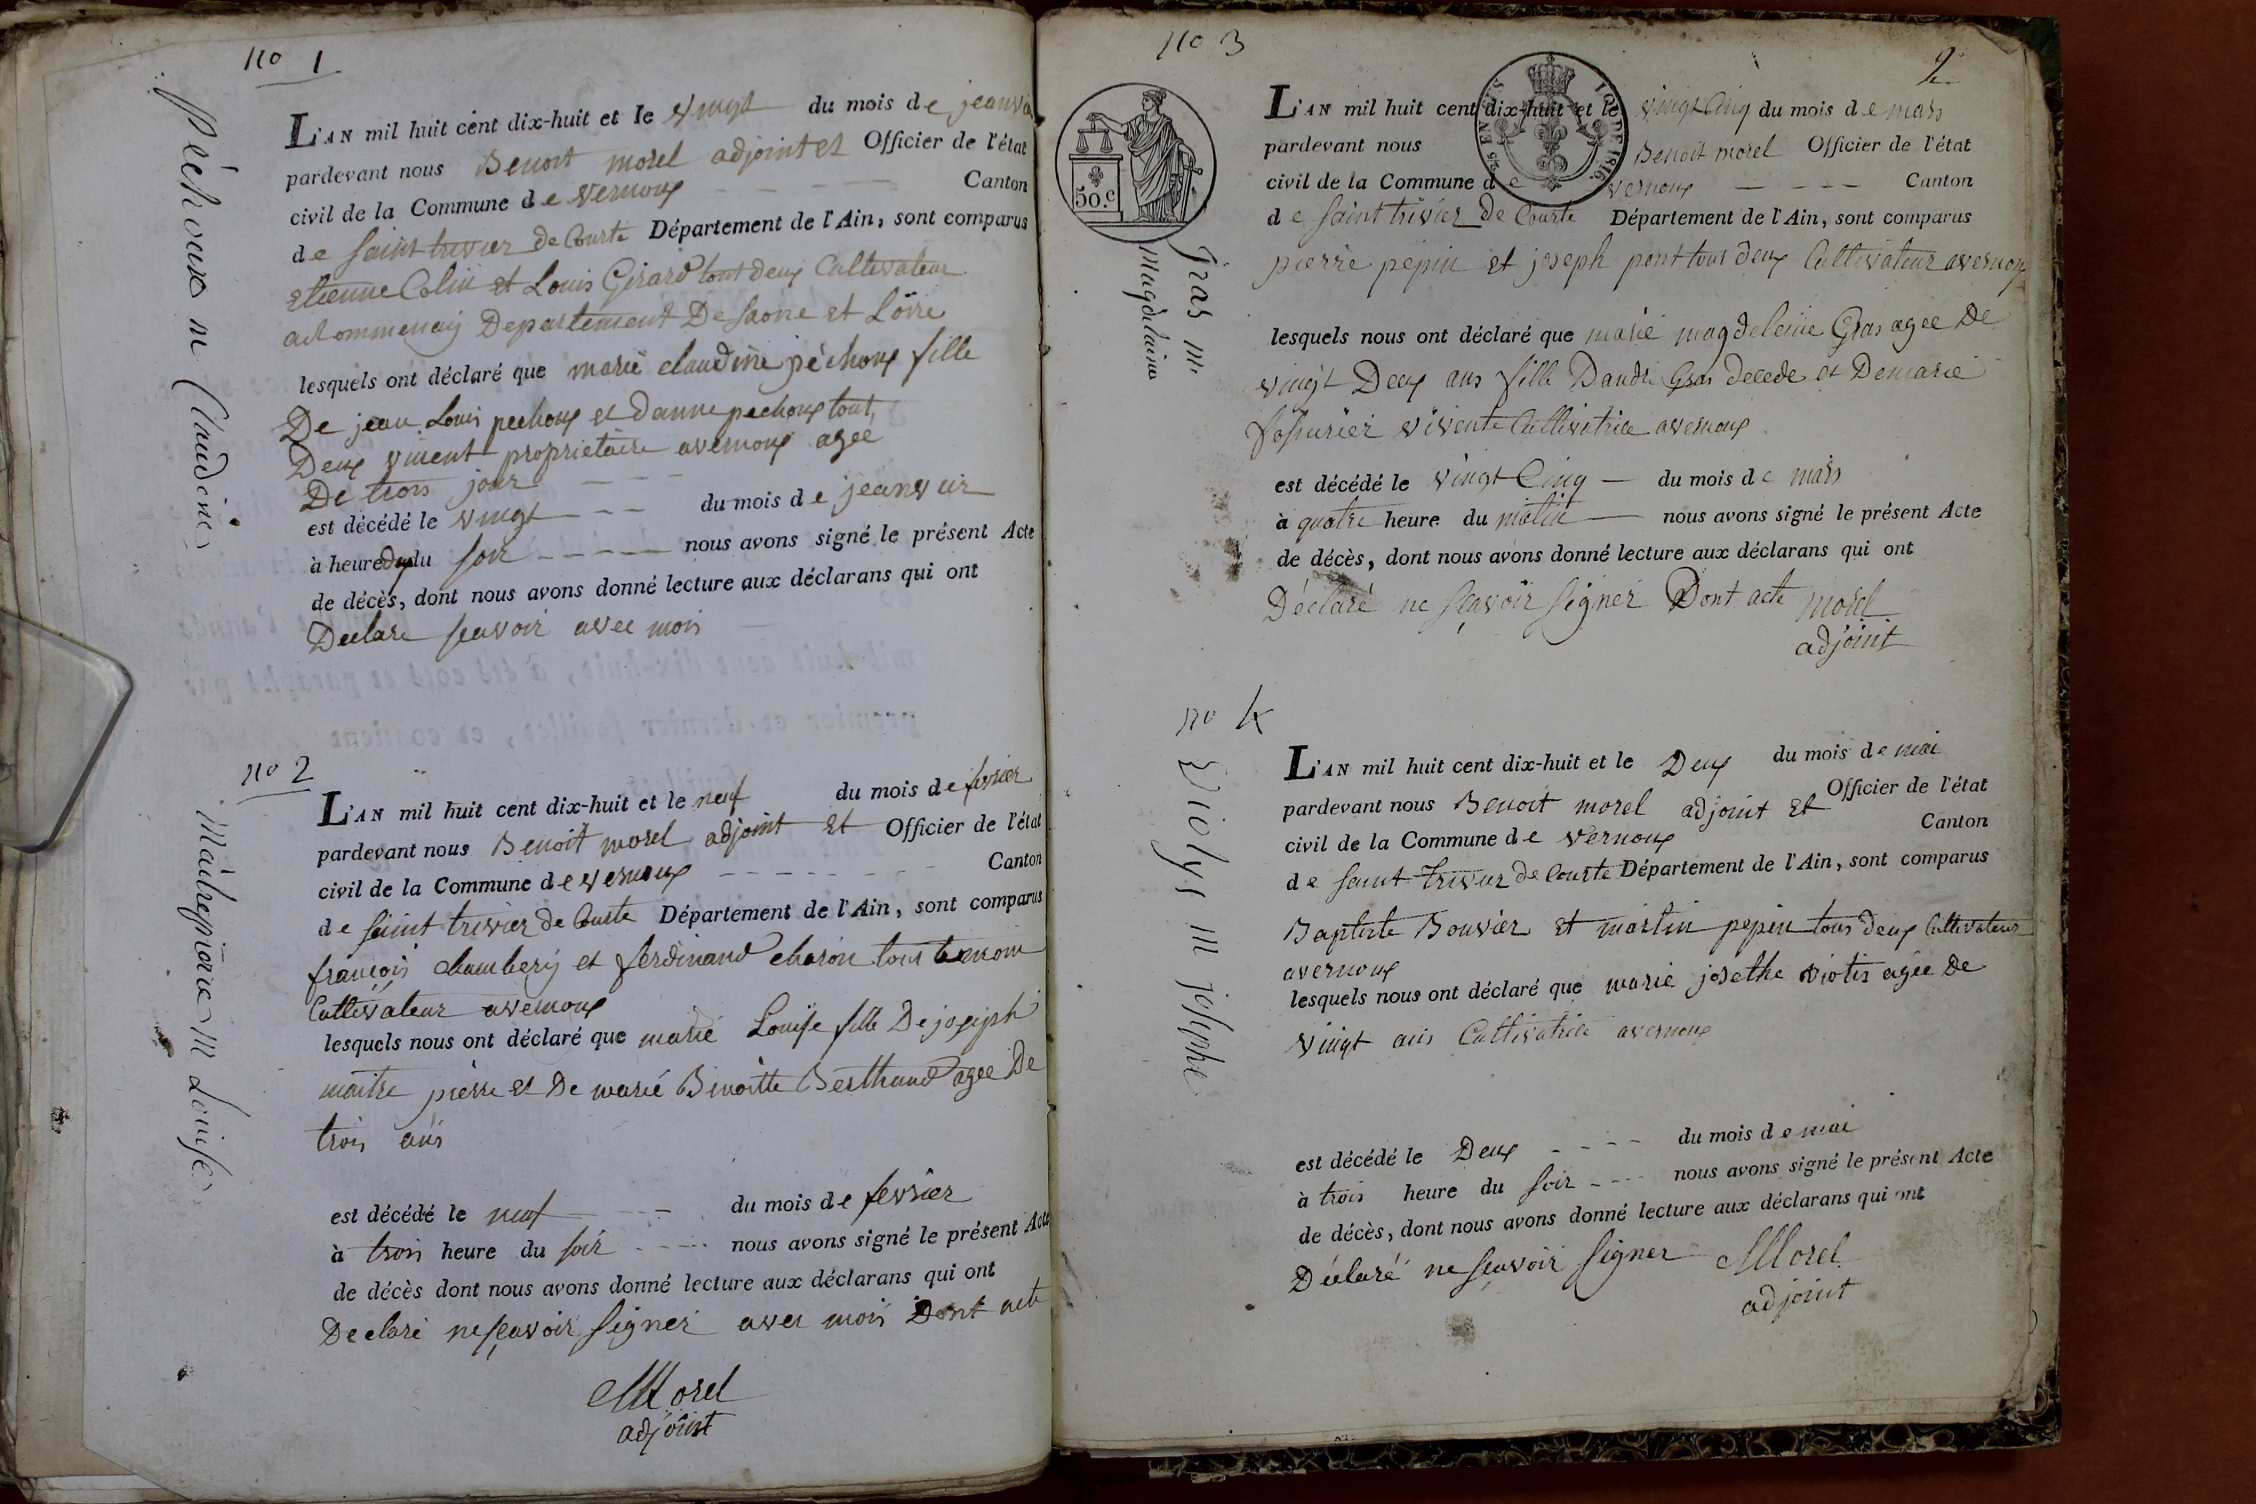 no 1
Péchoux m Claudine
L'AN mil huit cent dix-huit et le vingt du mois de jeanvi
pardevant nous Benoit morel adjoint et Officier de l'état
civil de la Commune de vernoux Canton
de saint trivier de Courte Département de l'Ain, sont comparus
etienne Colin et Louis Girard tout deux Cultivateur
a Departement De Saone et Loire
lesquels ont déclaré que marie claudine péchoux fille
De jean Louis pechoux et danne pechoux tout
Deux vivent proprietaire avernoux agee
De trois jour
est décédé le vingt du mois de jeanvier
à heure du soir nous avons signé le présent Acte
de décès, dont nous avons donné lecture aux déclarans qui ont
Declare seavoir avec mois
no 2
Maitrepierre m Louise
L'AN mil huit cent dix-huit et le neuf du mois de fevrier
pardevant nous Benoit morel adjoint et Officier de l'état
civil de la Commune de vernoux Canton
de saint trivier de Courte Département de l'Ain, sont comparus
francois chambery et ferdinand charon tous temoin
Cultivateur avernoux
lesquels nous ont déclaré que marie Louise fille De joseiph
maitre pierre et De marie Benoitte Berthaud agee De
trois ans
est décédé le neuf du mois de fevrier
à trois heure du soir nous avons signé le présent Acte
de décès dont nous avons donné lecture aux déclarans qui ont
Declaré ne sçavoir signer avec mois Dont acte
Morel
adjoint
no 3
2
50.c
25 EN SUS
TOI DE 1816.
Gras m
magdelaine
L'AN mil huit cent dix-huit et le vingt Cinq du mois de mars
pardevant nous Benoit morel Officier de l'état
civil de la Commune de vernoux Canton
de saint trivier de Courte Département de l'Ain, sont comparus
pierre pepin et joseph pont tout deux Cultivateur avernoux
lesquels nous ont déclaré que marie magdeleine Gras agee De
vingt Deux ans fille Dandre Gras decede et Demarie
vivente Cultivatrice avernoux
est décédé le vingt Cinq du mois de mars
à quatre heure du matin nous avons signé le présent Acte
de décès, dont nous avons donné lecture aux déclarans qui ont
Déclaré ne sçavoir signer Dont acte morel
adjoint
no 4
Violys m josephe
L'AN mil huit cent dix-huit et le Deux du mois de mai
pardevant nous Benoit morel adjoint et Officier de l'état
civil de la Commune de vernoux Canton
de saint trivier de Courte Département de l'Ain, sont comparus
Baptiste Bouvier et martin pepin tous deux Cultivateur
avernoux
lesquels nous ont déclaré que marie josethe viotis agée De
vingt ans Cultivatrice avernoux
est décédé le Deux du mois de mai
à trois heure du soir nous avons signé le présent Acte
de décès, dont nous avons donné lecture aux déclarans qui ont
Déclaré ne sçavoir signer Morel
adjoint